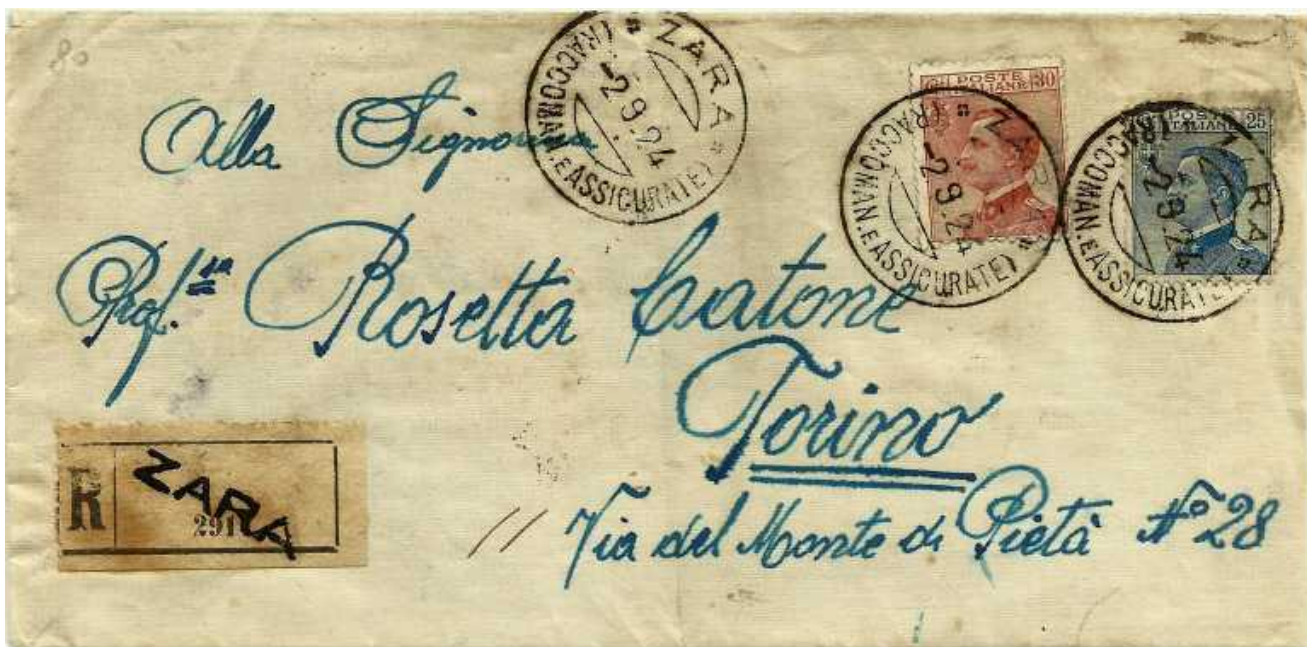 80
ZARA
(RACCOMAN. E ASSICURATE)
-2.9.24
POSTE ITALIANE 30
ZARA
(RACCOMAN. E ASSICURATE)
-2.9.24
POSTE ITALIANE 25
ZARA
(RACCOMAN. E ASSICURATE)
-2.9.24
Alla Signorina
Prof.ra Rosetta Catone
Torino
Via del Monte di Pietà No 28
R
ZARA
291